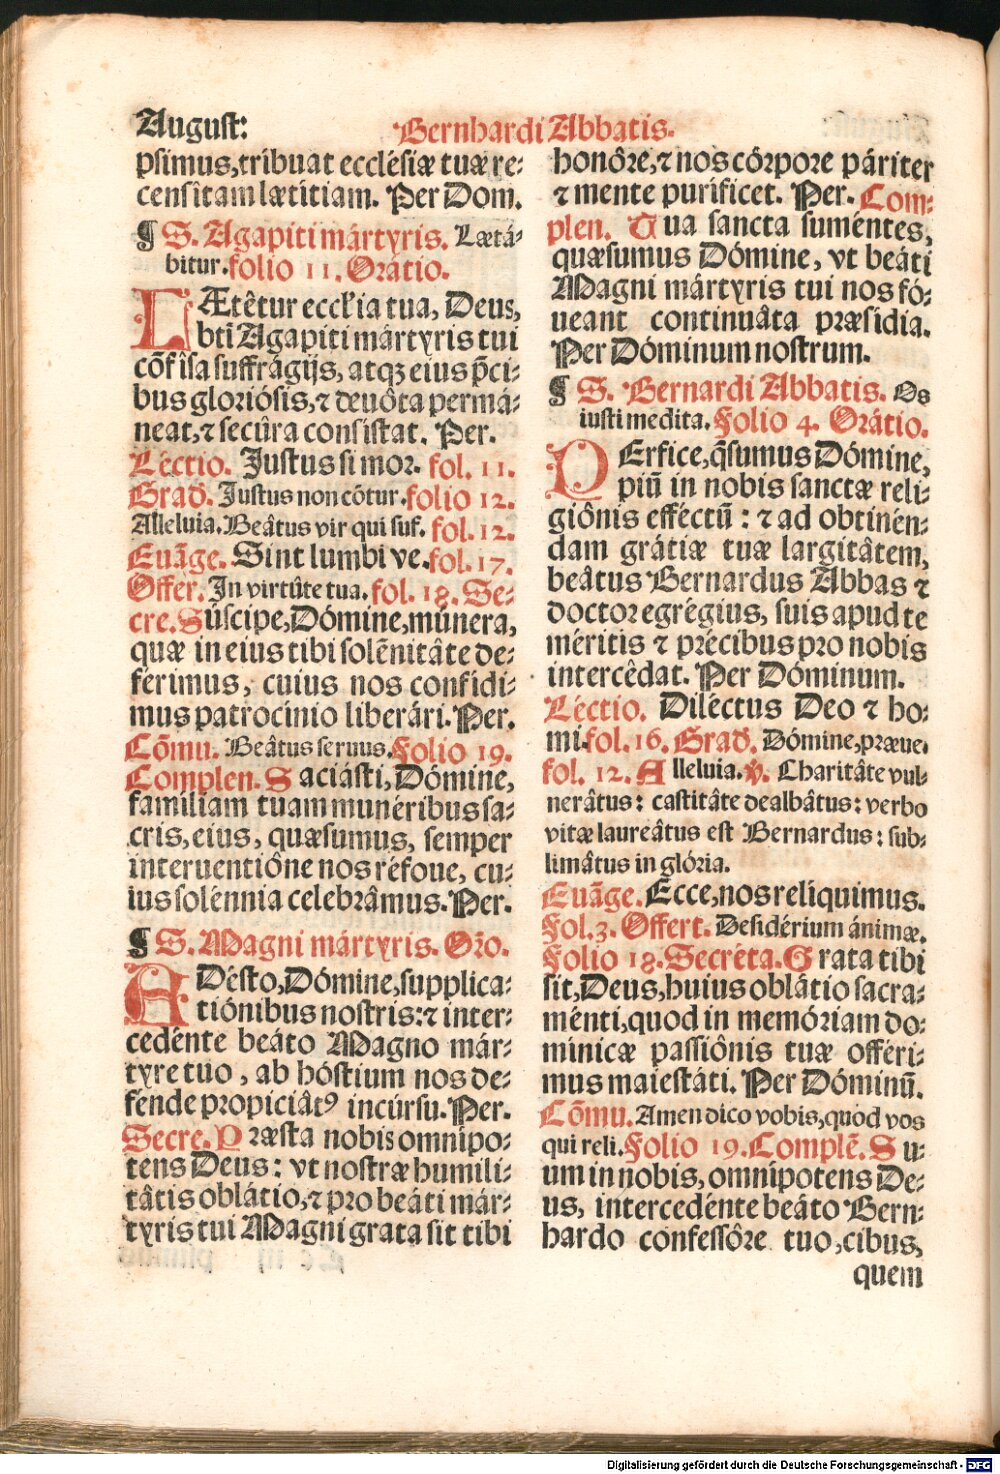 August:
Bernhardi Abbatis.
psimus, tribuat ecclésiæ tuæ re-
censitam lætitiam. Per Dom.
¶ S. Agapiti mártyris. Lætá-
bitur. folio 11. Orátio.
LÆtêtur eccľia tua, Deus,
bti Agapiti mártyris tui
cōfisa suffrágijs, atqꝫ eius p̄ci-
bus gloriósis, ⁊ deuôta permá-
neat, ⁊ secûra consistat. Per.
Léctio. Justus si mor. fol. 11.
Grad̄. Justus non cōtur. folio 12.
Alleluia. Beâtus vir qui suf. fol. 12.
Euāge. Sint lumbi ve. fol. 17.
Offer. In virtûte tua. fol. 18. Se-
cre. Súscipe, Dómine, múnera,
quæ in eius tibi solēnitâte de-
ferimus, cuius nos confidi-
mus patrocínio liberári. Per.
Cōmu. Beâtus seruus. Folio 19.
Complen. Saciásti, Dómine,
familiam tuam munéribus sa-
cris, eius, quæsumus, semper
interuentiône nos réfoue, cu-
ius solénnia celebrâmus. Per.
¶ S. Magni mártyris. Orō.
ADésto, Dómine, supplica-
tiónibus nostris: ⁊ inter-
cedénte beáto Magno már-
tyre tuo, ab hóstium nos de-
fende propiciátꝰ incúrsu. Per.
Secre. Præsta nobis omnípo-
tens Deus: vt nostræ humili-
tâtis oblátio, ⁊ pro beáti már-
tyris tui Magni grata sit tibi
honôre, ⁊ nos córpore páriter
⁊ mente puríficet. Per. Com-
plen. Tua sancta suméntes,
quæsumus Dómine, vt beáti
Magni mártyris tui nos fó-
ueant continuâta præsídia.
Per Dóminum nostrum.
¶ S. Bernardi Abbatis. Os
iusti medita. Folio 4. Orátio.
PErfice, q̄sumus Dómine,
piū in nobis sanctæ reli-
giônis effêctū: ⁊ ad obtinén-
dam grátiæ tuæ largitâtem,
beâtus Bernardus Abbas ⁊
doctor egrégius, suis apud te
méritis ⁊ précibus pro nobis
intercêdat. Per Dóminum.
Léctio. Diléctus Deo ⁊ ho-
mi. fol. 16. Grad̄. Dómine, præue.
fol. 12. Alleluia. ℣. Charitâte vul-
nerâtus: castitâte dealbâtus: verbo
vitæ laureâtus est Bernardus: sub-
limâtus in glória.
Euāge. Ecce, nos relíquimus.
Fol. 3. Offert. Desidérium ánimæ.
Folio 18. Secréta. Grata tibi
sit, Deus, huius oblátio sacra-
ménti, quod in memóriam do-
minicæ passiônis tuæ offéri-
mus maiestáti. Per Dóminū.
Cōmu. Amen dico vobis, quod vos
qui reli. Folio 19. Complē. Su-
um in nobis, omnípotens De-
us, intercedénte beáto Bern-
hardo confessôre tuo, cibus,
quem
Digitalisierung gefördert durch die Deutsche Forschungsgemeinschaft - DFG